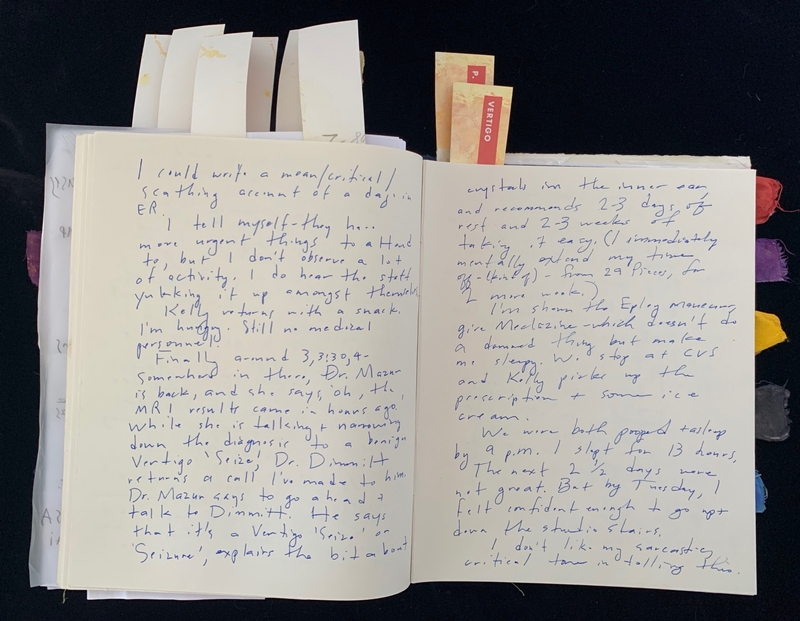 P.
VERTIGO
I could write a mean/critical/
scathing account of a day in
ER.
I tell myself - they have
more urgent things to attend
to, but I don't observe a lot
of activity. I do hear the staff
yukking it up amongst themselves
Kelly returns with a snack.
I'm hungry. Still no medical
personnel.
Finally around 3, 3:30, 4 -
somewhere in there, Dr. Mazur
is back, and she says, 'oh, the
MRI results came in hours ago,
while she is talking + narrowing
down the diagnosis to a benign
Vertigo 'Seize', Dr. Dimmitt
returns a call I've made to him.
Dr. Mazur says to go ahead +
talk to Dimmitt. He says
that it's a Vertigo 'Seize' or
'Seizure', explains the bit about
crystals in the inner ear,
and recommends 2-3 days of
rest and 2-3 weeks of
taking it easy. (I immediately
mentally extend my time
off - (kind of) - from 29 Pieces, for
2 more weeks.)
I'm shown the Epley Maneuver,
give Meclizine - which doesn't do
a damned thing but make
me sleepy. We stop at CVS
and Kelly picks up the
prescription + some ice
cream.
We were both pooped + asleep
by 9 p.m. I slept for 13 hours.
The next 2 1/2 days were
not great. But by Tuesday, I
felt confident enough to go up +
down the studio stairs.
I don't like my sarcastic,
critical tone in telling this.